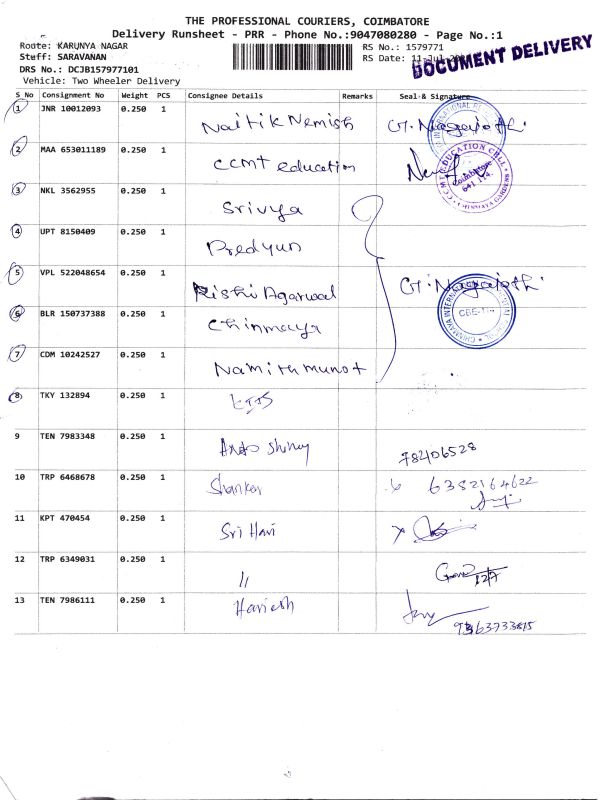 THE PROFESSIONAL COURIERS, COIMBATORE
Delivery Runsheet - PRR - Phone No.:9047080280 - Page No.:1
Route: KARUNYA NAGAR RS No.: 1579771
Steff: SARAVANAN RS Date: 11-Jul
DOCUMENT DELIVERY
DRS No.: DCJB157977101
Vehicle: Two Wheeler Delivery
S No Consignment No Weight PCS Consignee Details Remarks Seal & Signature
1 JNR 10012093 0.250 1 Naitik Nemish G. Nagajothi
2 MAA 653011189 0.250 1 CCMT education
CCMT EDUCATION CELL Coimbatore 641 114. CHINMAYA GARDENS
3 NKL 3562955 0.250 1 Srivya
4 UPT 8150409 0.250 1 Predyun
5 VPL 522048654 0.250 1 Rishi Agarwal G. Nagajothi
6 BLR 150737388 0.250 1 Chinmaya
CHINMAYA INTERNATIONAL CBE-114
7 CDM 10242527 0.250 1 Namith munot
8 TKY 132894 0.250 1
9 TEN 7983348 0.250 1 78406528
10 TRP 6468678 0.250 1 Shanker 6382164622
11 KPT 470454 0.250 1 Sri Hari
12 TRP 6349031 0.250 1 11 12/7
13 TEN 7986111 0.250 1 Hariesh